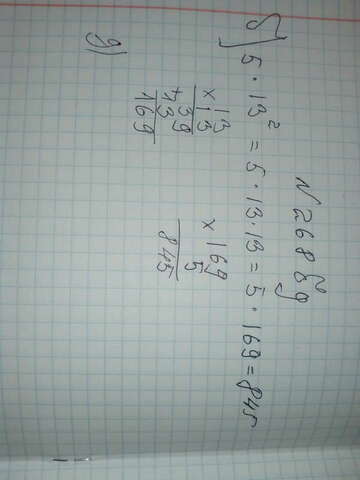 № 268 бд
б) 5 · 13² = 5 · 13 · 13 = 5 · 169 = 845
× 13
13
39
+ 13
169
× 169
5
845
д)